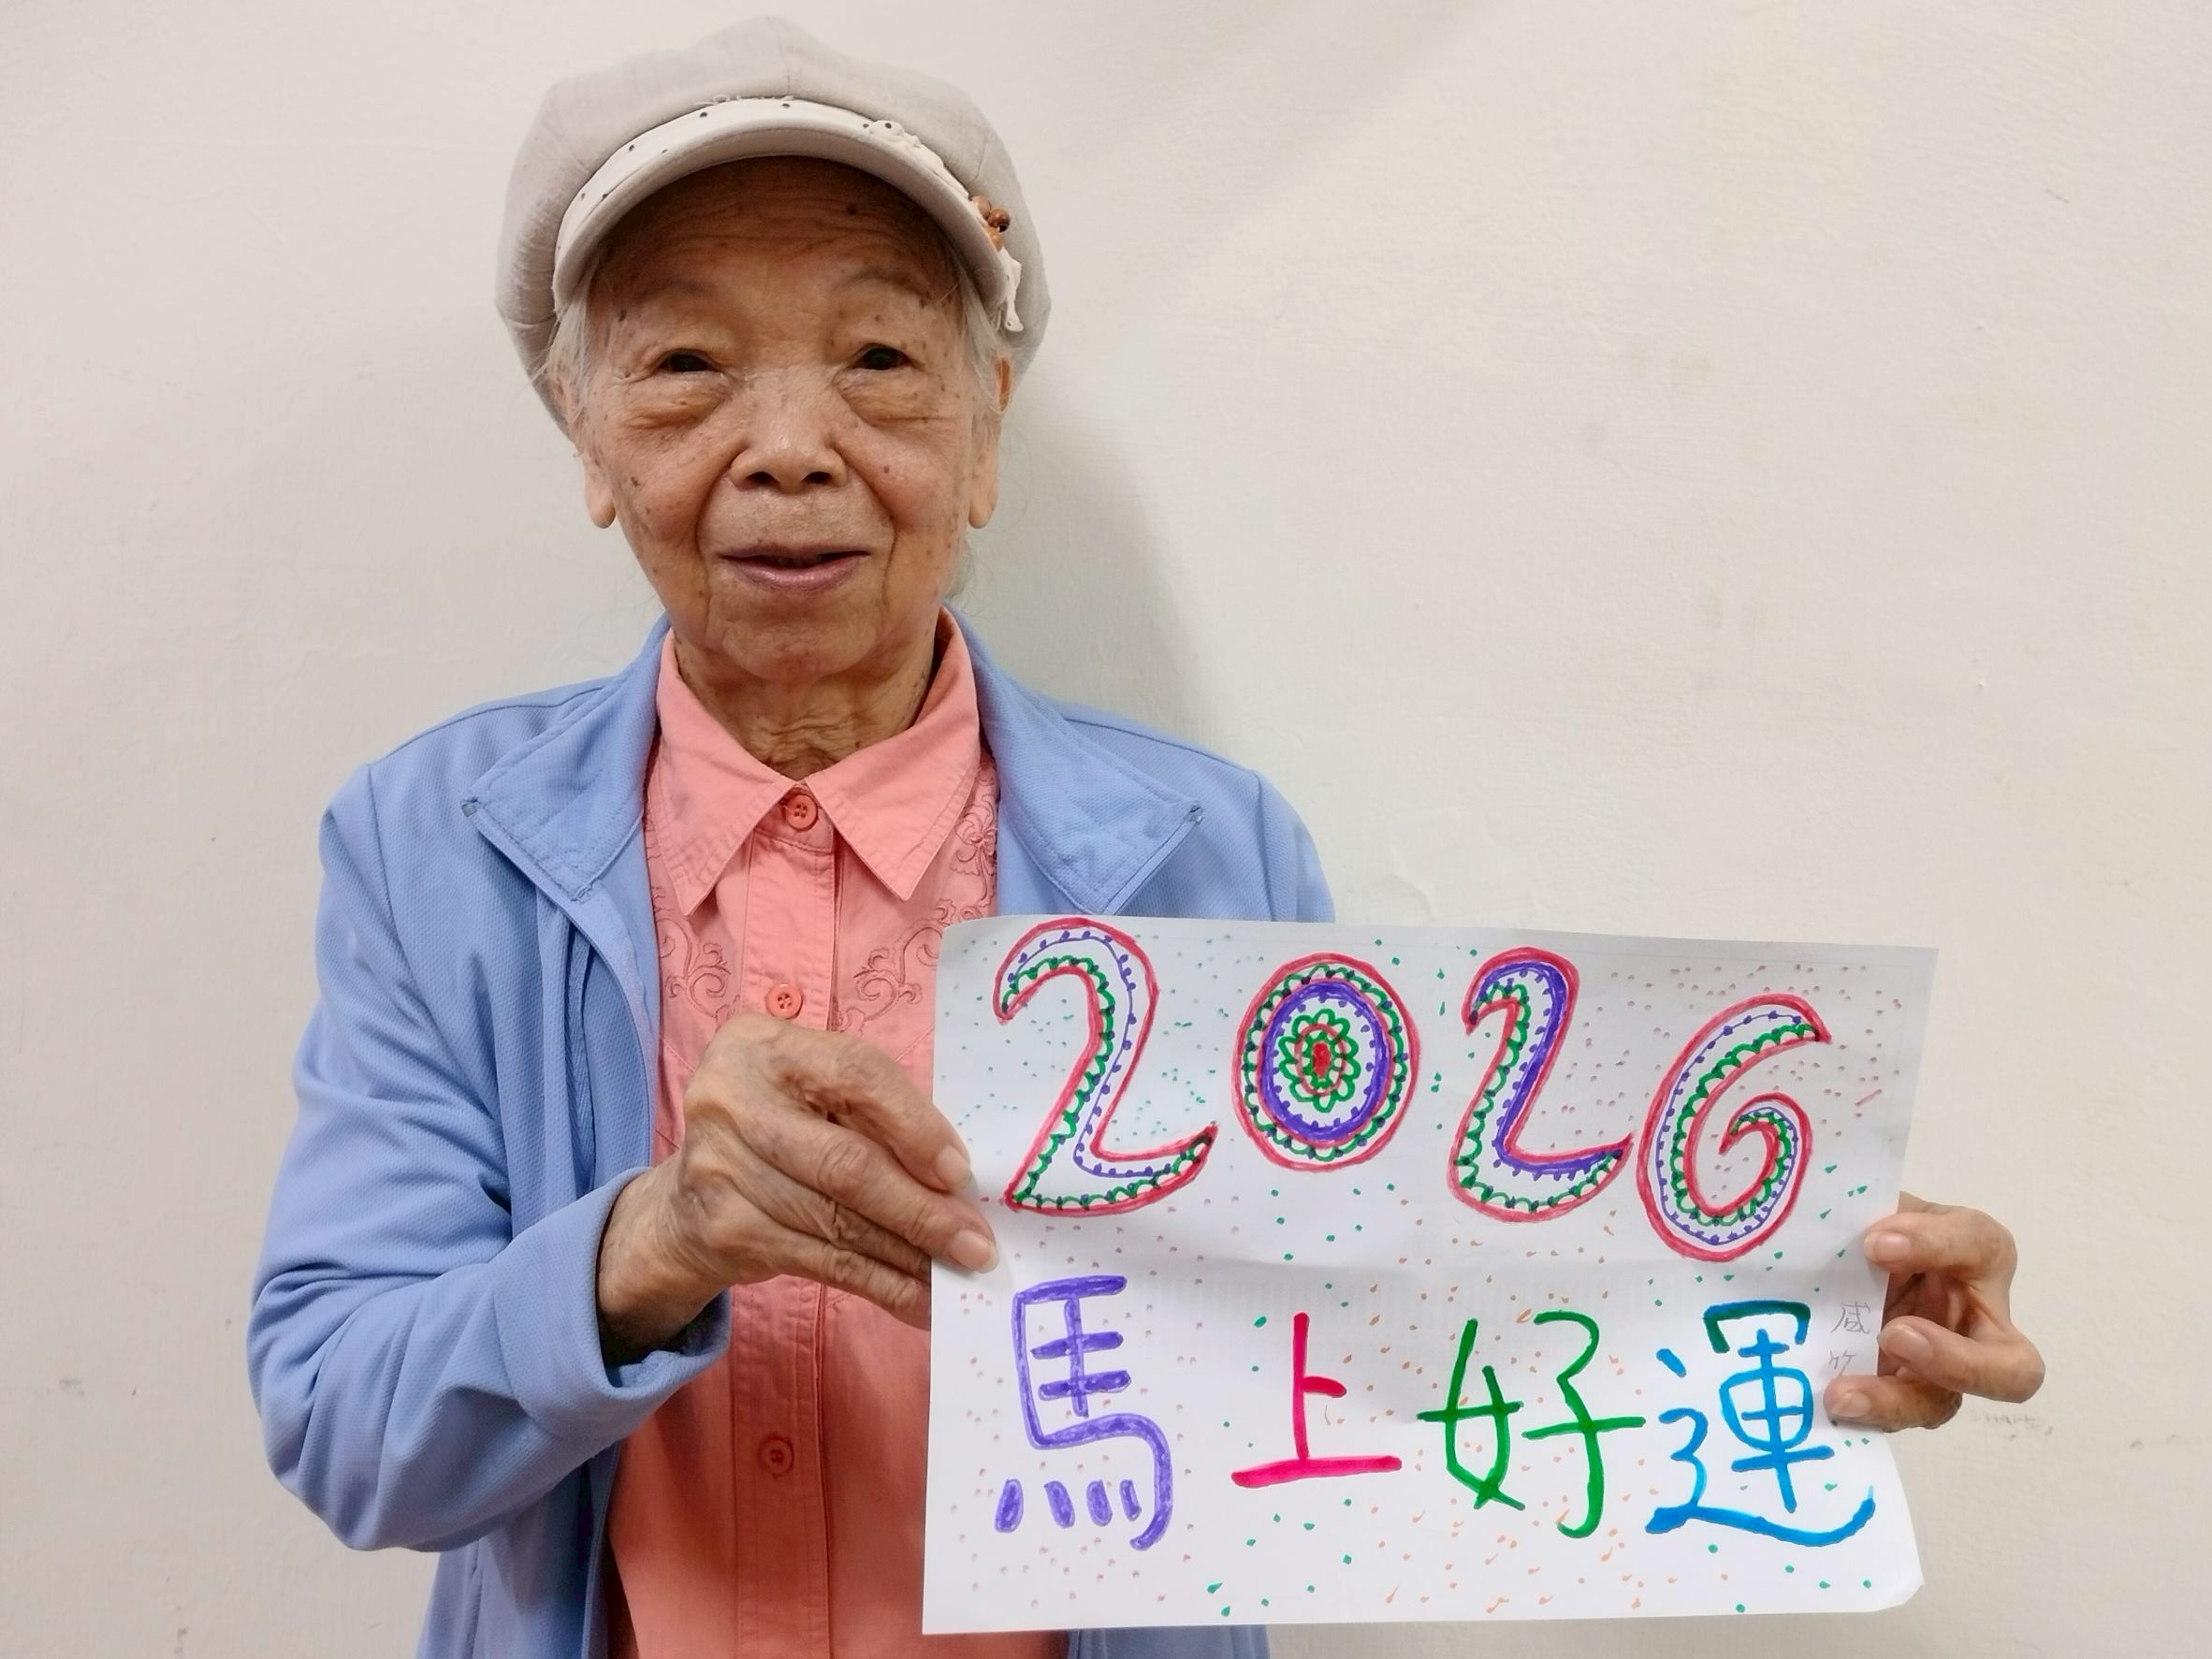 2026
馬上好運